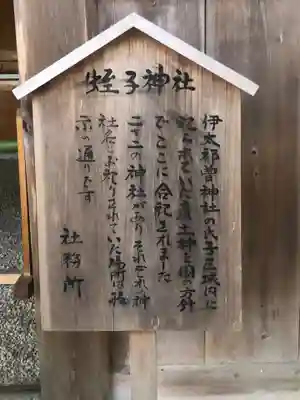 蛭子神社
伊太祁曽神社の氏子区域内に
祀られていた産土神を国の方針
でここに合祀されました
二十二の神社があり それぞれの神
社名とお祀りされていた場所は掲
示の通りです
社務所